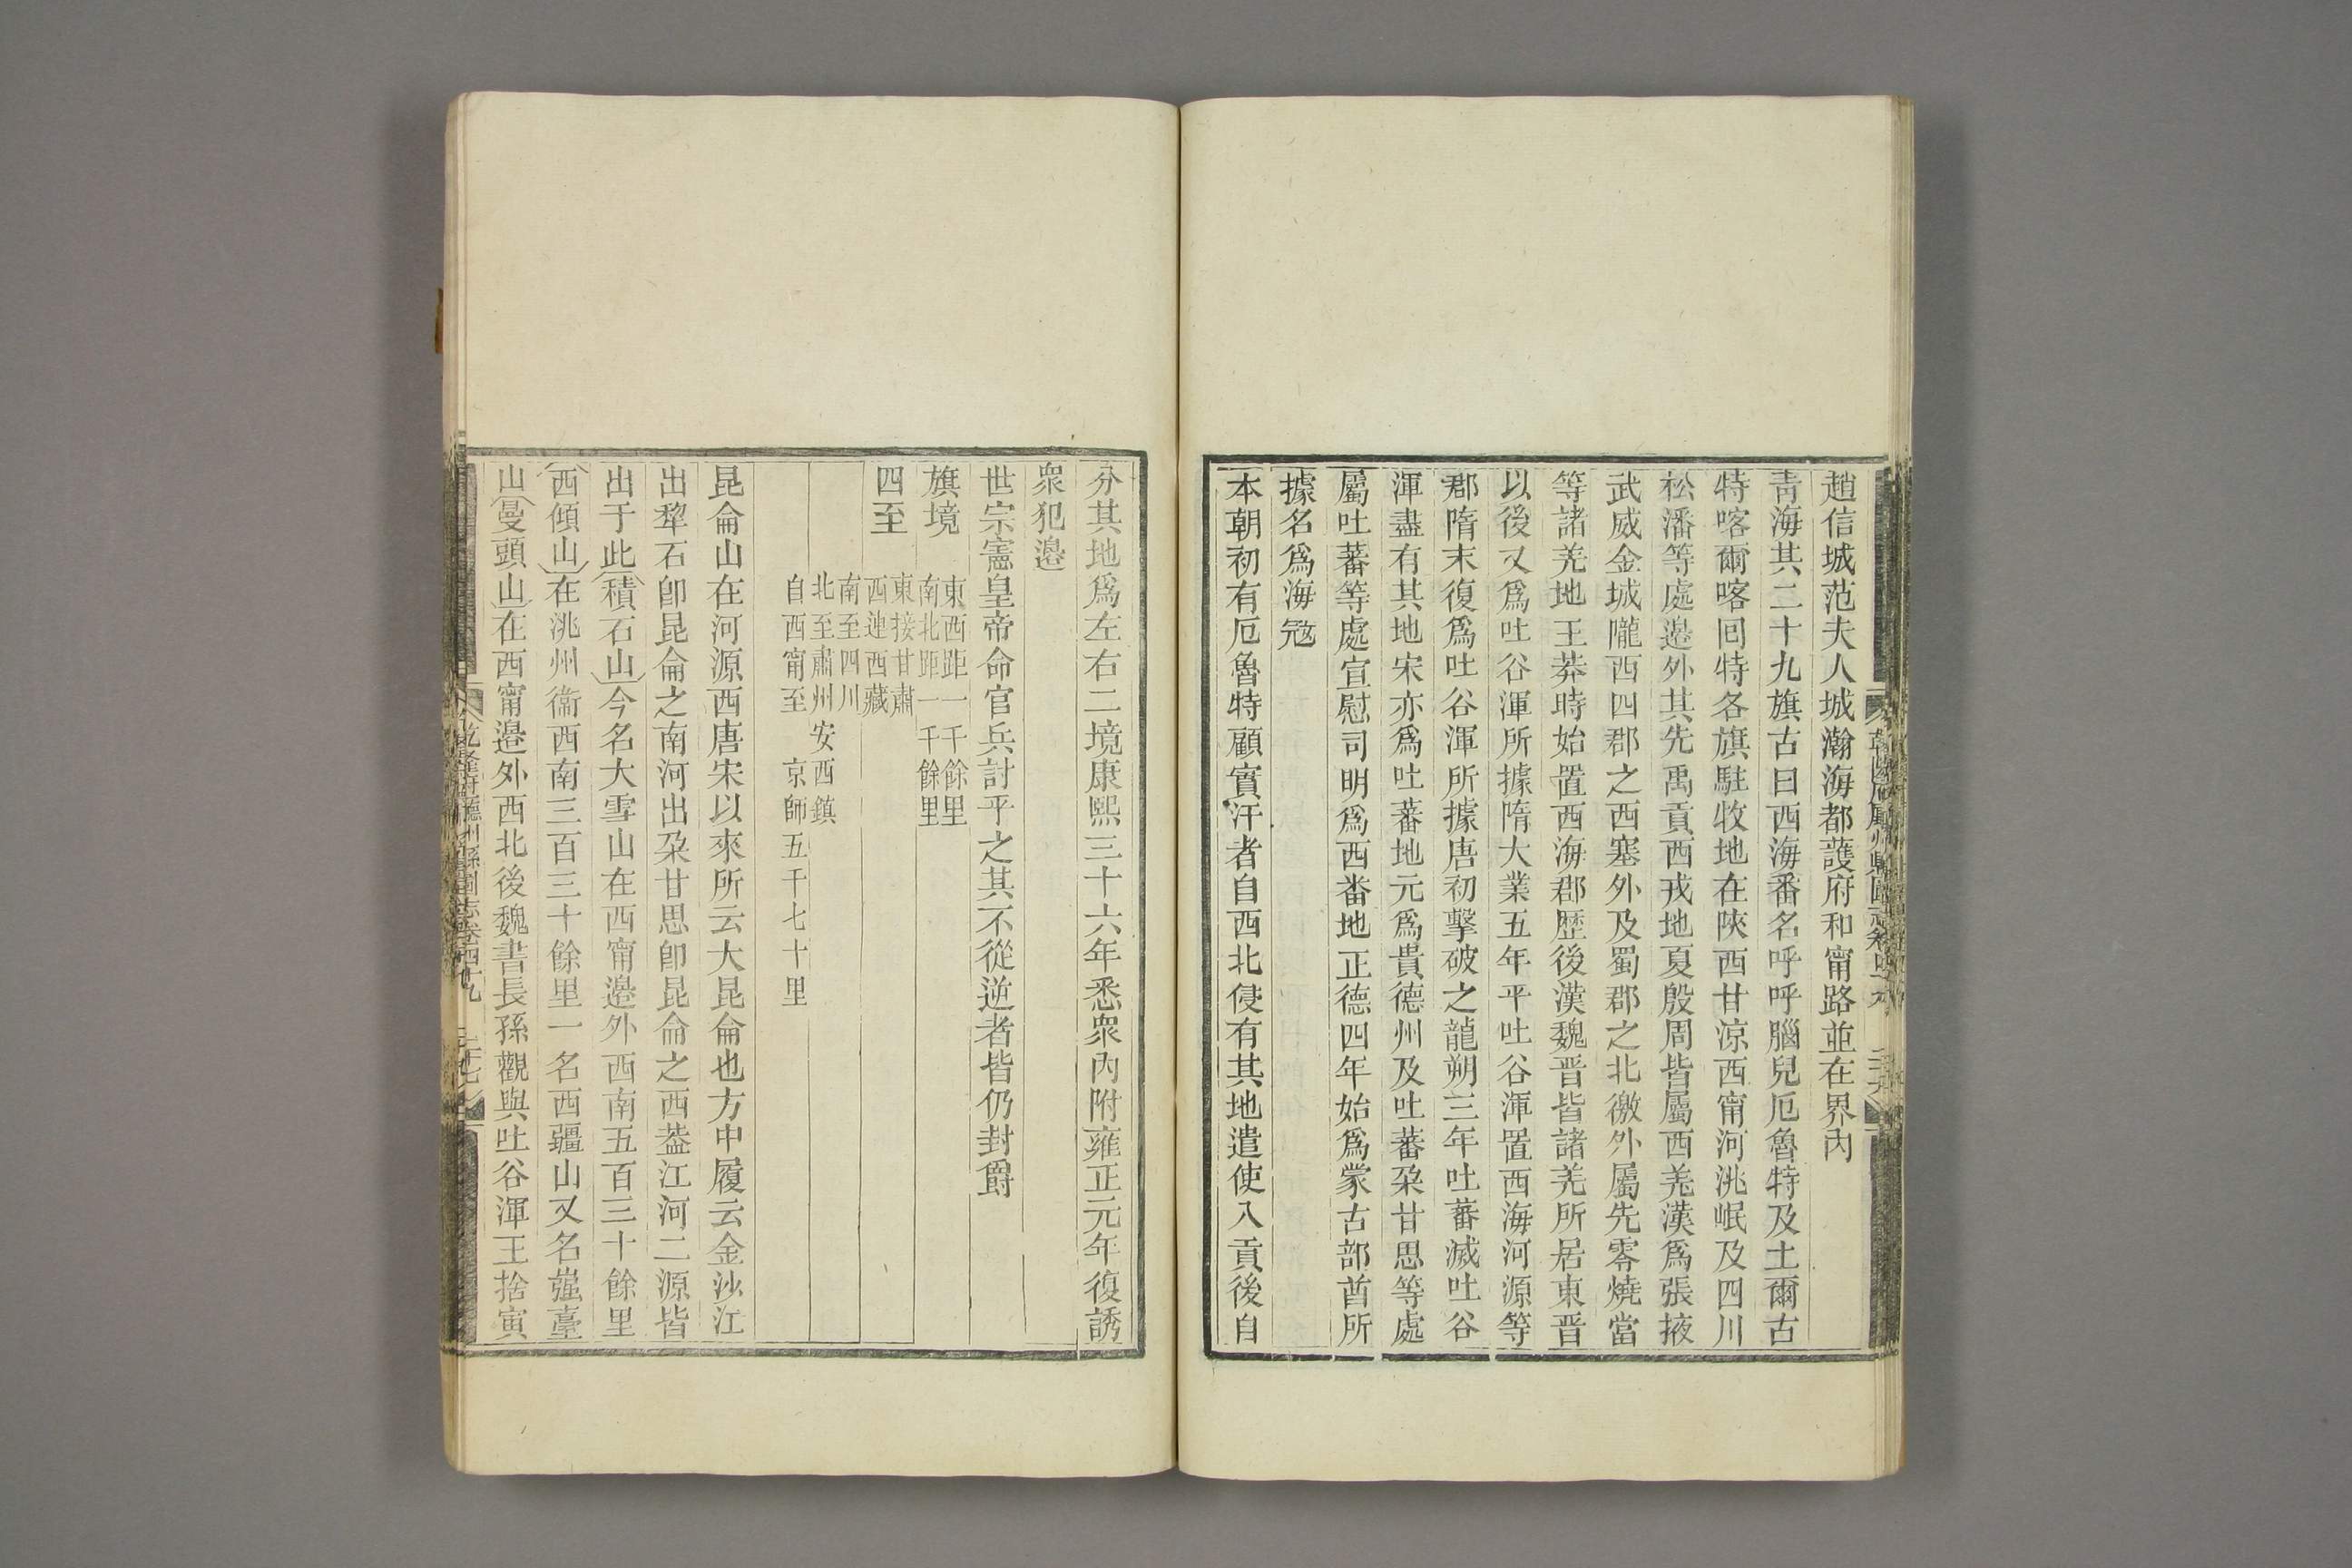 趙信城范夫人城瀚海都護府和甯路並在界內
青海其二十九旗古曰西海番名呼呼腦兒厄魯特及土爾古
特喀爾喀回特各旗駐牧地在陝西甘涼西甯河洮岷及四川
松潘等處邊外其先禹貢西戎地夏殷周皆屬西羌漢爲張掖
武威金城隴西四郡之西塞外及蜀郡之北徼外屬先零燒當
等諸羌地王莽時始置西海郡歷後漢魏晋皆諸羌所居東晋
以後又爲吐谷渾所據隋大業五年平吐谷渾置西海河源等
郡隋末復爲吐谷渾所據唐初擊破之龍朔三年吐蕃滅吐谷
渾盡有其地宋亦爲吐蕃地元爲貴德州及吐蕃朶甘思等處
屬吐蕃等處宣慰司明爲西畨地正德四年始爲蒙古部酋所
據名爲海寇
本朝初有厄魯特顧實汗者自西北侵有其地遣使入貢後自
分其地爲左右二境康熙三十六年悉衆內附雍正元年復誘
衆犯邊
世宗憲皇帝命官兵討平之其不從逆者皆仍封爵
旗境 東西距一千餘里
南北距一千餘里
四至 東接甘肅
西連西藏
南至四川
北至肅州安西鎮
自西甯至 京師五千七十里
昆侖山在河源西唐宋以來所云大昆侖也方中履云金沙江
出犂石卽昆侖之南河出朶甘思卽昆侖之西葢江河二源皆
出于此(積石山)今名大雪山在西甯邊外西南五百三十餘里
(西傾山)在洮州衞西南三百三十餘里一名西疆山又名嵹臺
山(曼頭山)在西甯邊外西北後魏書長孫觀與吐谷渾王拾寅
乾隆府廳州縣圖志卷四十九